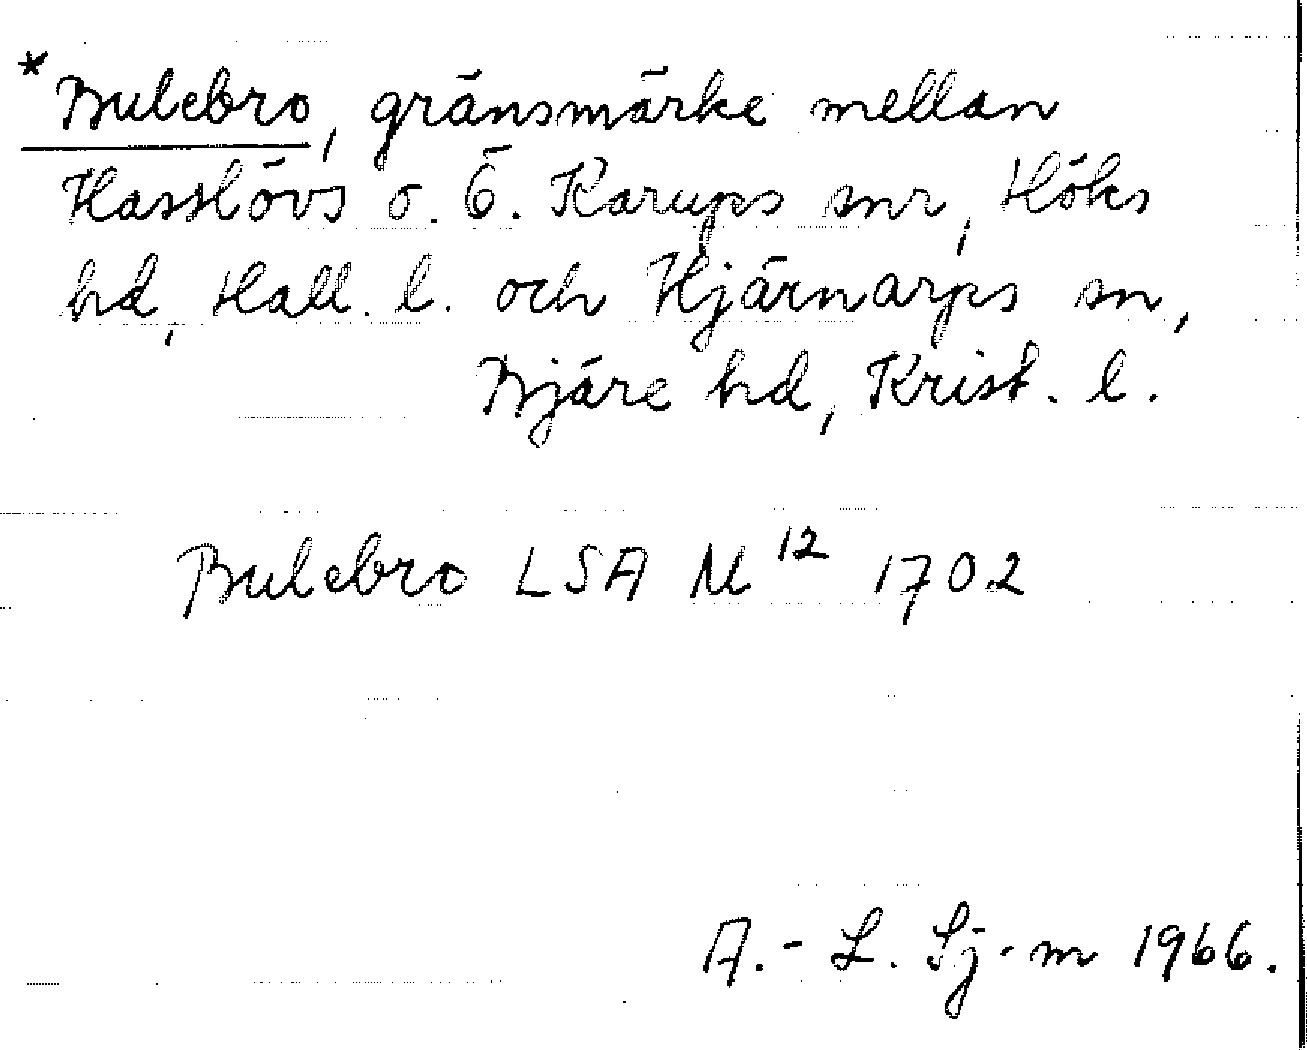 *Bulebro, gränsmärke mellan
Hasslövs o. Ö. Karups snr, Höks
hd, Hall. l. och Hjärnarps sn,
Bjäre hd, Krist. l.
Bulebro LSA M 12 1702
A.-L. Sj-m 1966.